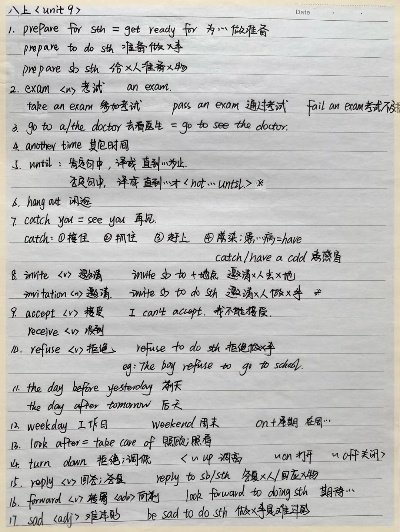 八上 <unit 9>
Date
1. prepare for sth = get ready for 为… 做准备
prepare to do sth 准备做×事
prepare sb sth 给×人准备×物
2. exam <n> 考试 an exam.
take an exam 参加考试 pass an exam 通过考试 fail an exam 考试不及格
3. go to a/the doctor 去看医生 = go to see the doctor.
4. another time 其他时间
5. until: 肯定句中, 译成 直到…为止
否定句中, 译成 直到…才 <not … until> ※
6. hang out 闲逛
7. catch you = see you 再见.
catch: ① 接住 ② 抓住 ③ 赶上 ④ 感染:病 = have
catch/have a cold 患感冒
8. invite <v> 邀请 invite sb to + 地点 邀请×人去×地
invitation <n> 邀请. invite sb to do sth 邀请×人做×事 ※
9. accept <v> 接受 I can't accept. 我不能接受.
receive <v> 收到
10. refuse <v> 拒绝 refuse to do sth 拒绝做×事
eg: The boy refuse to go to school.
11. the day before yesterday 前天
the day after tomorrow 后天
12. weekday 工作日 weekend 周末 on + 星期 在周…
13. look after = take care of 照顾, 照看
14. turn down 拒绝; 调低 < up 调高 on 打开 off 关闭>
15. reply <v> 回答; 答复 reply to sb/sth 答复×人/回应×物
16. forward <v> 转寄 <adv> 向前 look forward to doing sth 期待…
17. sad <adj> 难过的 be sad to do sth 做×事是难过的